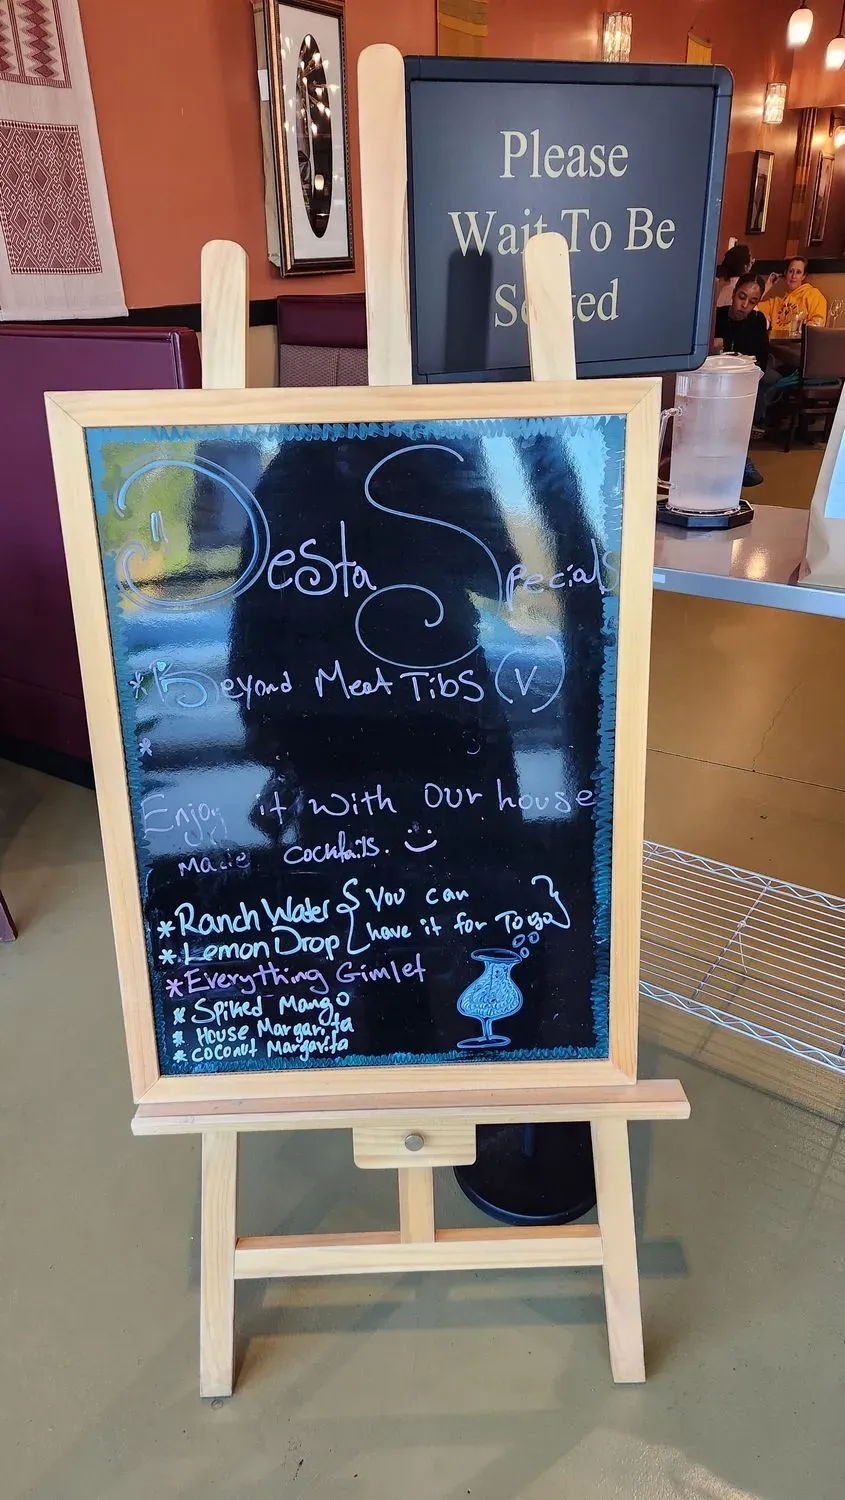 Please
Wait To Be
Seated
Desta Specials
*Beyond Meat Tibs (V)
*
Enjoy it with our house
made cocktails. :)
*Ranch Water { You can
*Lemon Drop { have it for To go }
*Everything Gimlet
*Spiked Mango
*House Margarita
*Coconut Margarita